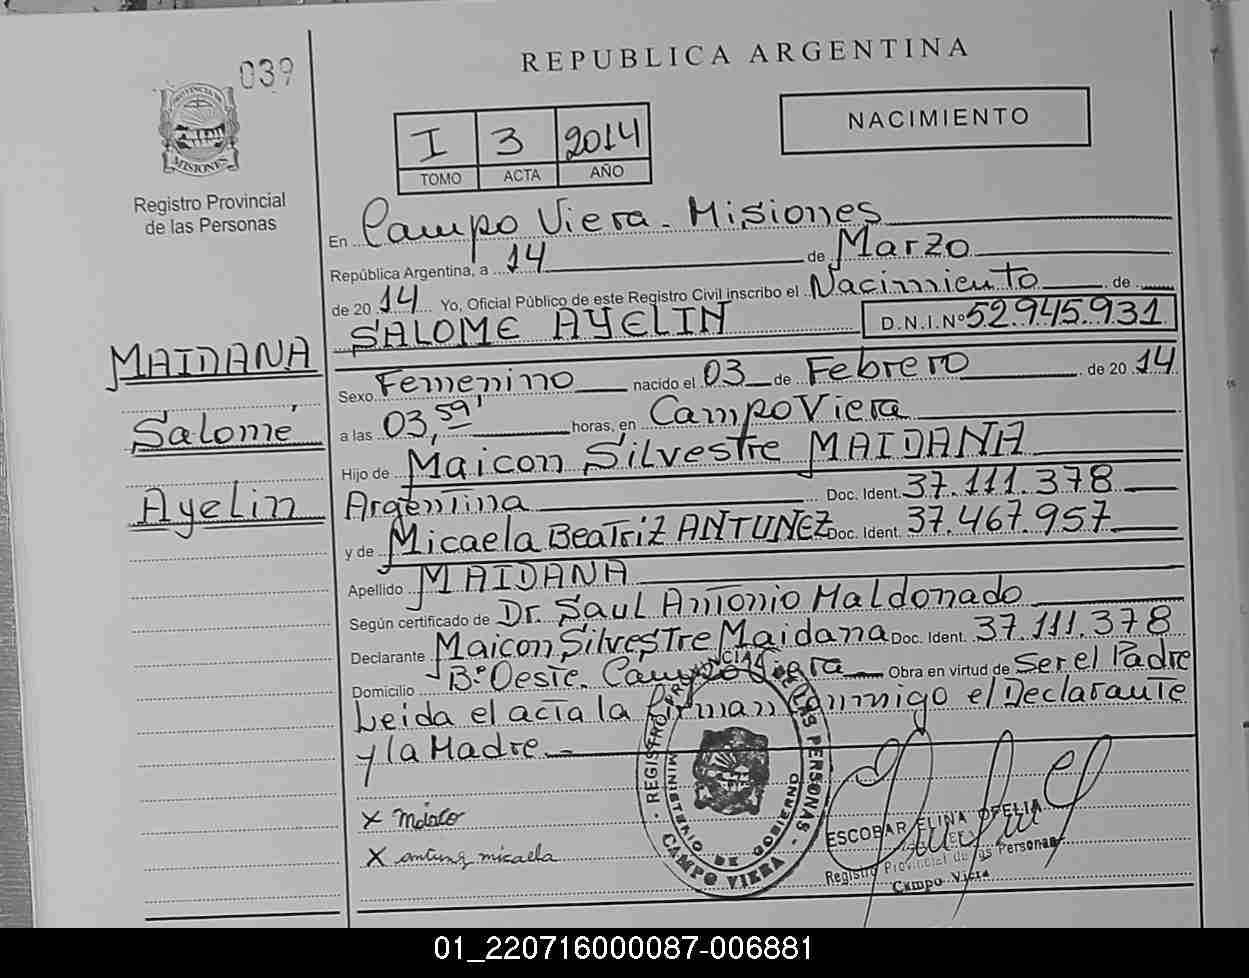 039
REPUBLICA ARGENTINA
PROVINCIA DE
MISIONES
Registro Provincial
de las Personas
I 3 2014
TOMO ACTA AÑO
NACIMIENTO
En Campo Viera - Misiones
República Argentina, a 14 de Marzo
de 2014 Yo, Oficial Público de este Registro Civil inscribo el Nacimiento de
SALOME AYELIN D.N.I.Nº 52.945.931
MAIDANA
Salomé
Ayelin
Sexo Femenino nacido el 03 de Febrero de 2014
a las 03,59' horas, en Campo Viera
Hijo de Maicon Silvestre MAIDANA
Argentina Doc. Ident. 37.111.378
y de Micaela Beatriz ANTUNEZ Doc. Ident. 37.467.957
Apellido MAIDANA
Según certificado de Dr. Saul Antonio Maldonado
Declarante Maicon Silvestre Maidana Doc. Ident. 37.111.378
Domicilio Bº Oeste. Campo Viera Obra en virtud de Ser el Padre
Leida el acta la firman conmigo el Declarante
y la Madre.-
REGISTRO PROVINCIAL DE LAS PERSONAS - CAMPO VIERA -
MINISTERIO DE GOBIERNO
X
X antunez micaela
ESCOBAR ELINA OFELIA
Registro Provincial de las Personas
Campo Viera
01_220716000087-006881